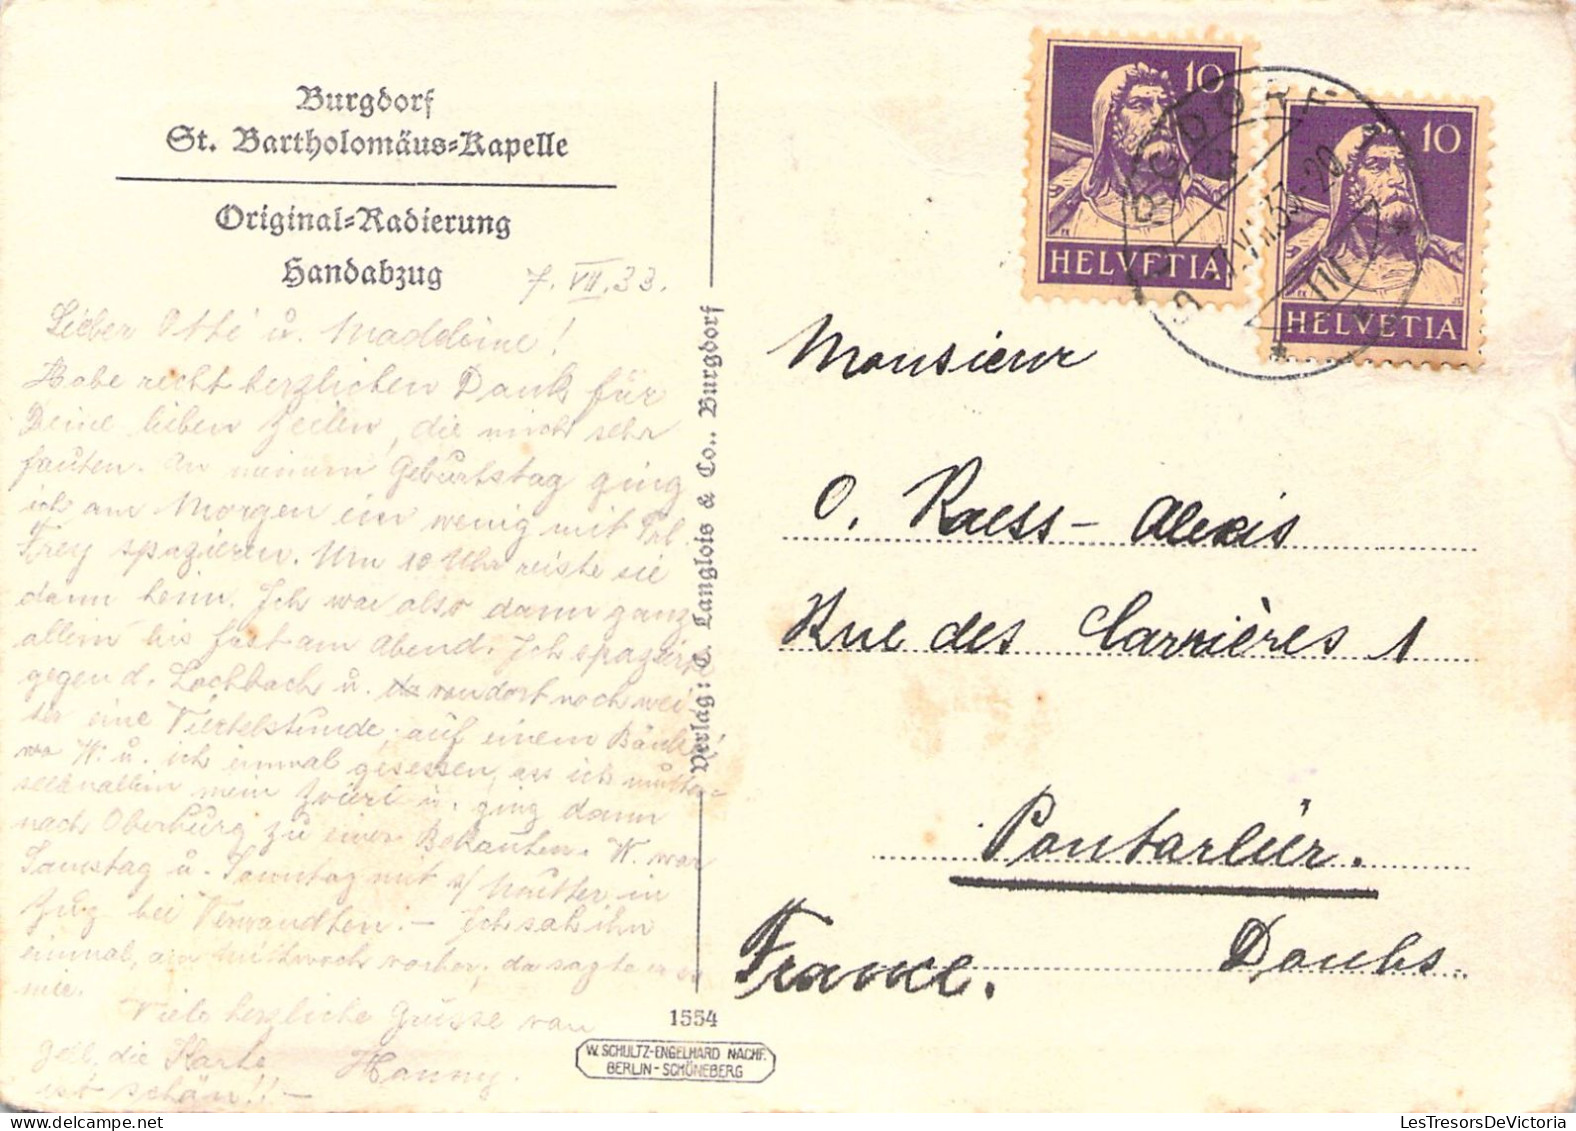 Burgdorf
St. Bartholomäus-Kapelle
Original-Radierung
Handabzug
7. VII. 33.
Lieber Otti u. Maddeleine!
Habe recht herzlichen Dank für
Deine lieben Zeilen, die mich sehr
fauten. An meinem Geburtstag ging
ich am Morgen ein wenig mit Frl.
Frey spazieren. Um 10 Uhr reiste sie
dann heim. Ich war also dann ganz
allein bis fast am Abend. Ich spazierte
gegen d. Lochbach u. von dort noch wei
ter eine Viertelstunde, auf einem Bänkli
wo W. u. ich einmal gesessen, ass ich mutter-
seelenallein mein Zvieri u. ging dann
nach Oberburg zu einer Bekannten. W. war
Samstag u. Sonntag mit s/ Mutter in
Zug bei Verwandten. – Ich sah ihn
einmal, am Mittwoch vorher, da sagte er es
mir.
Viele herzliche Grüsse von
gell, die Karte Hanny.
ist schön!! –
Verlag: E. Langlois & Co., Burgdorf
1554
W. SCHULTZ-ENGELHARD NACHF.
BERLIN-SCHÖNEBERG
10
HELVETIA
10
HELVETIA
BURGDORF
7.VII.33.-20
III
Monsieur
O. Raess-Alexis
Rue des Carrières 1
Pontarlier.
Doubs.
France.
LesTresorsDeVictoria